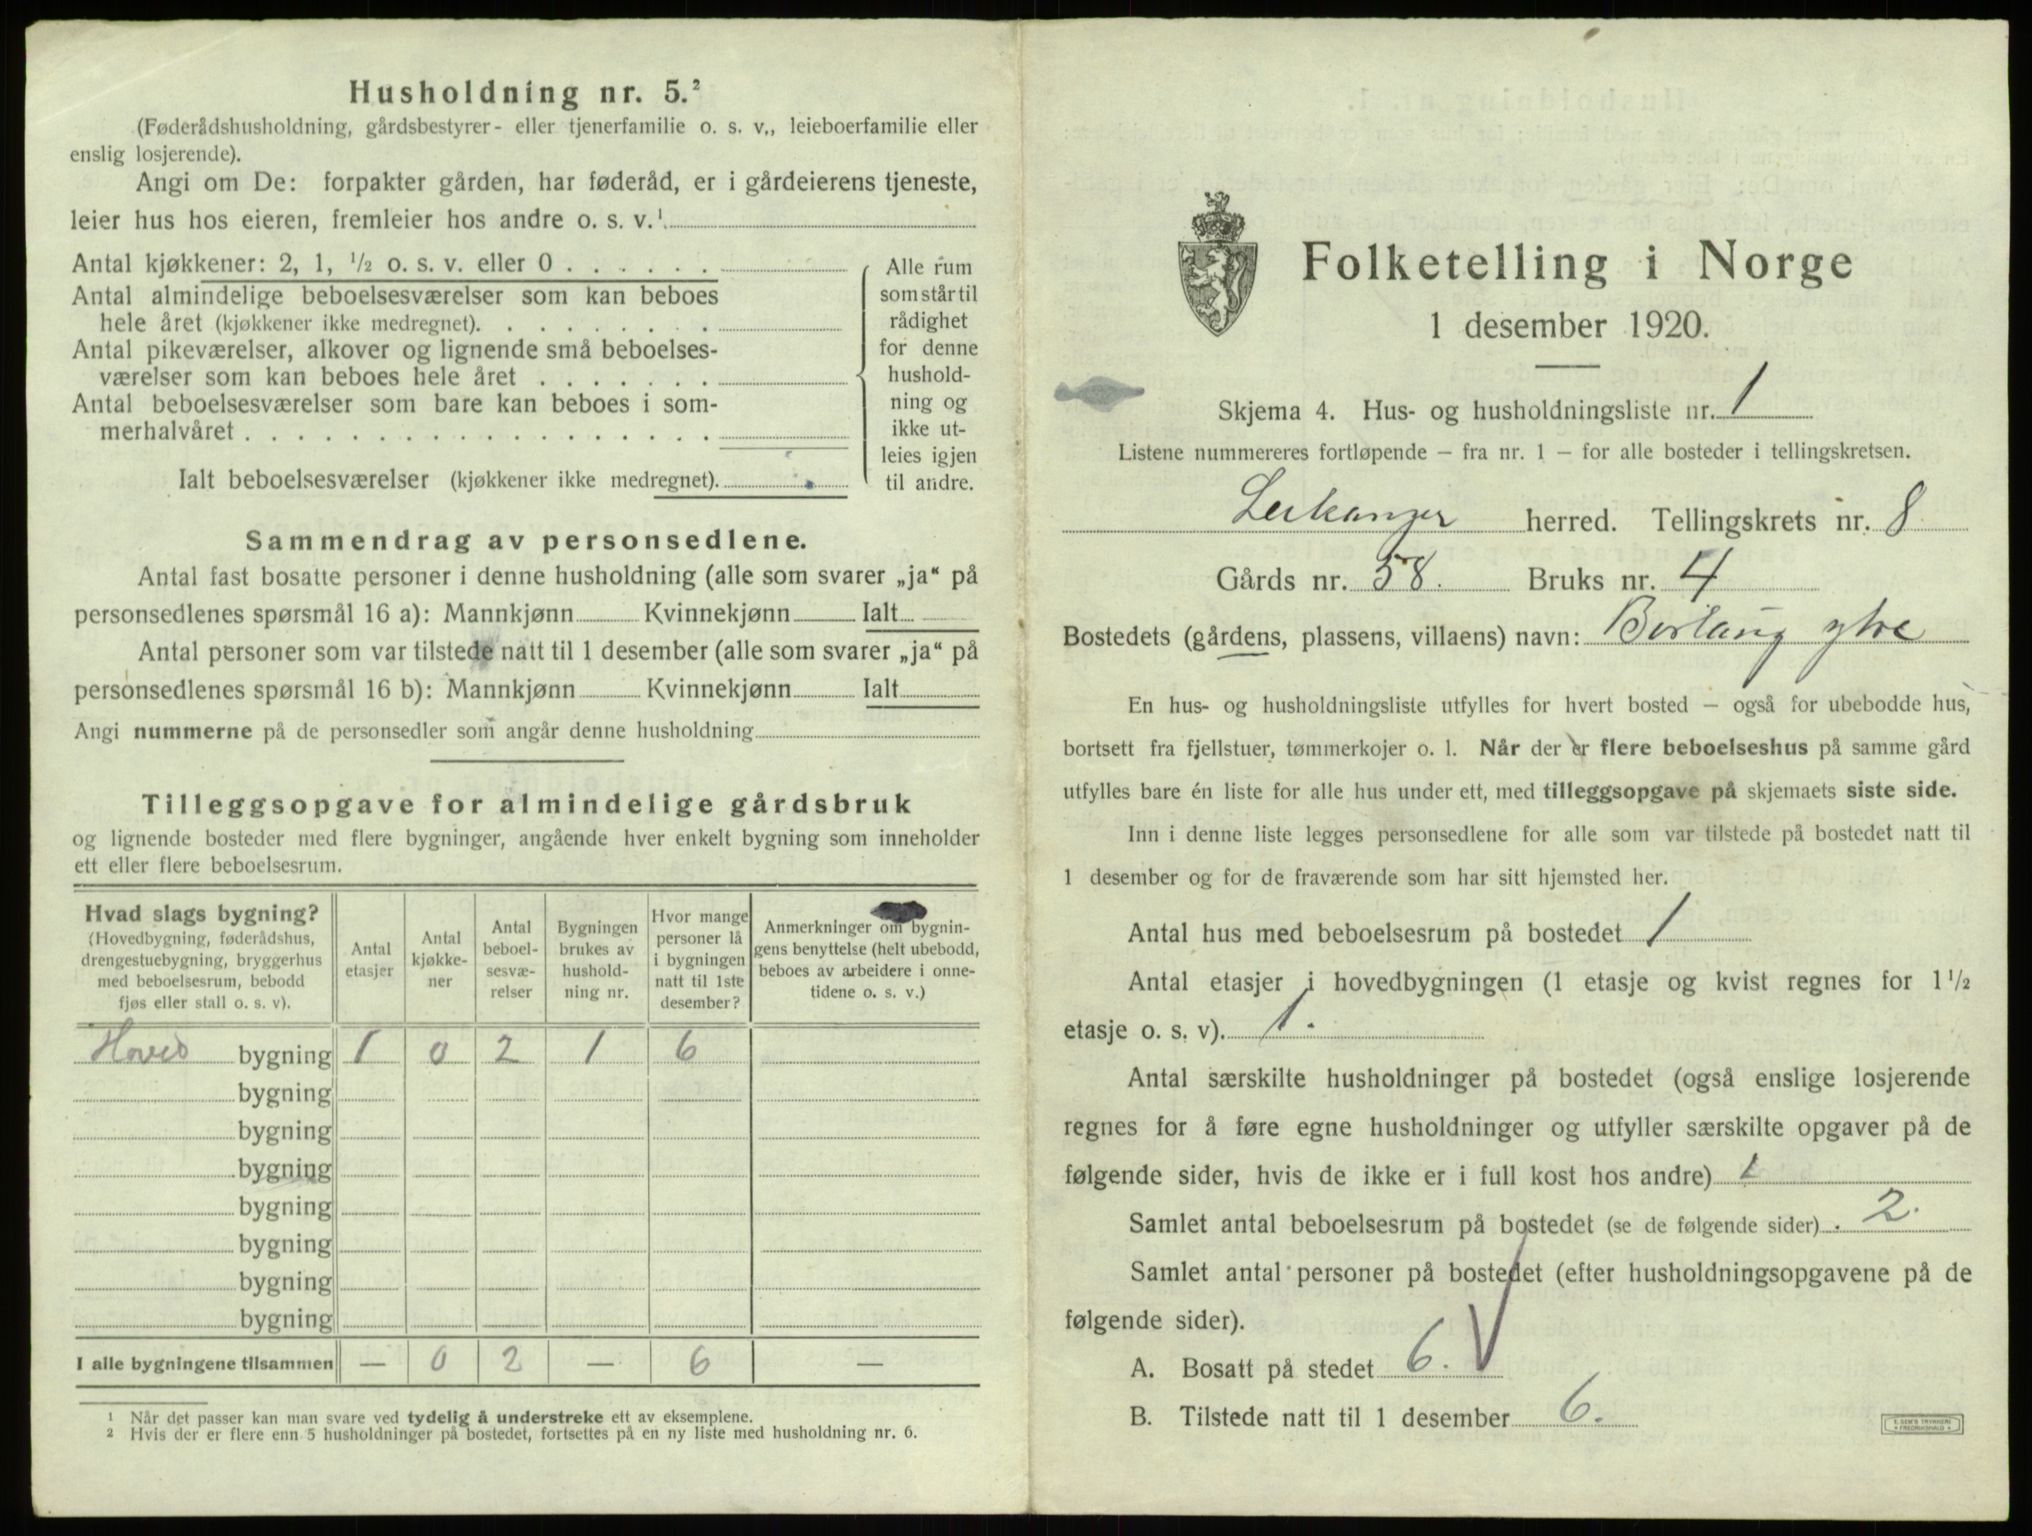 Husholdning nr. 5.²
(Føderådshusholdning, gårdsbestyrer- eller tjenerfamilie o. s. v., leieboerfamilie eller
enslig losjerende).
Angi om De: forpakter gården, har føderåd, er i gårdeierens tjeneste,
leier hus hos eieren, fremleier hos andre o. s. v.¹
Antal kjøkkener: 2, 1, ½ o. s. v. eller 0 . . . . . .
Antal almindelige beboelsesværelser som kan beboes
hele året (kjøkkener ikke medregnet). . . . . . . . .
Antal pikeværelser, alkover og lignende små beboelses-
værelser som kan beboes hele året . . . . . . .
Antal beboelsesværelser som bare kan beboes i som-
merhalvåret . . . . . . . . . . . . . . . . . .
Ialt beboelsesværelser (kjøkkener ikke medregnet).
Alle rum
som står til
rådighet
for denne
hushold-
ning og
ikke ut-
leies igjen
til andre.
Sammendrag av personsedlene.
Antal fast bosatte personer i denne husholdning (alle som svarer „ja“ på
personsedlenes spørsmål 16 a): Mannkjønn Kvinnekjønn Ialt
Antal personer som var tilstede natt til 1 desember (alle som svarer „ja“ på
personsedlenes spørsmål 16 b): Mannkjønn Kvinnekjønn Ialt
Angi nummerne på de personsedler som angår denne husholdning
Tilleggsopgave for almindelige gårdsbruk
og lignende bosteder med flere bygninger, angående hver enkelt bygning som inneholder
ett eller flere beboelsesrum.
Hvad slags bygning?
(Hovedbygning, føderådshus,
drengestuebygning, bryggerhus
med beboelsesrum, bebodd
fjøs eller stall o. s. v).
Antal
etasjer
Antal
kjøkke-
ner
Antal
beboel-
sesvæ-
relser
Bygningen
brukes av
hushold-
ning nr.
Hvor mange
personer lå
i bygningen
natt til 1ste
desember?
Anmerkninger om bygnin-
gens benyttelse (helt ubebodd,
beboes av arbeidere i onne-
tidene o. s. v.)
Hoved bygning 1 0 2 1 6
bygning
bygning
bygning
bygning
bygning
bygning
bygning
I alle bygningene tilsammen — 0 2 — 6 —
¹ Når det passer kan man svare ved tydelig å understreke ett av eksemplene.
² Hvis der er flere enn 5 husholdninger på bostedet, fortsettes på en ny liste med husholdning nr. 6.
Folketelling i Norge
1 desember 1920.
Skjema 4. Hus- og husholdningsliste nr. 1
Listene nummereres fortløpende – fra nr. 1 – for alle bosteder i tellingskretsen.
Leikanger herred. Tellingskrets nr. 8
Gårds nr. 58. Bruks nr. 4
Bostedets (gårdens, plassens, villaens) navn: Borlaug ytre
En hus- og husholdningsliste utfylles for hvert bosted – også for ubebodde hus,
bortsett fra fjellstuer, tømmerkojer o. l. Når der er flere beboelseshus på samme gård
utfylles bare én liste for alle hus under ett, med tilleggsopgave på skjemaets siste side.
Inn i denne liste legges personsedlene for alle som var tilstede på bostedet natt til
1 desember og for de fraværende som har sitt hjemsted her.
Antal hus med beboelsesrum på bostedet 1
Antal etasjer i hovedbygningen (1 etasje og kvist regnes for 1½
etasje o. s. v). 1.
Antal særskilte husholdninger på bostedet (også enslige losjerende
regnes for å føre egne husholdninger og utfyller særskilte opgaver på de
følgende sider, hvis de ikke er i full kost hos andre) 1
Samlet antal beboelsesrum på bostedet (se de følgende sider) . 2.
Samlet antal personer på bostedet (efter husholdningsopgavene på de
følgende sider).
A. Bosatt på stedet 6.
B. Tilstede natt til 1 desember 6.